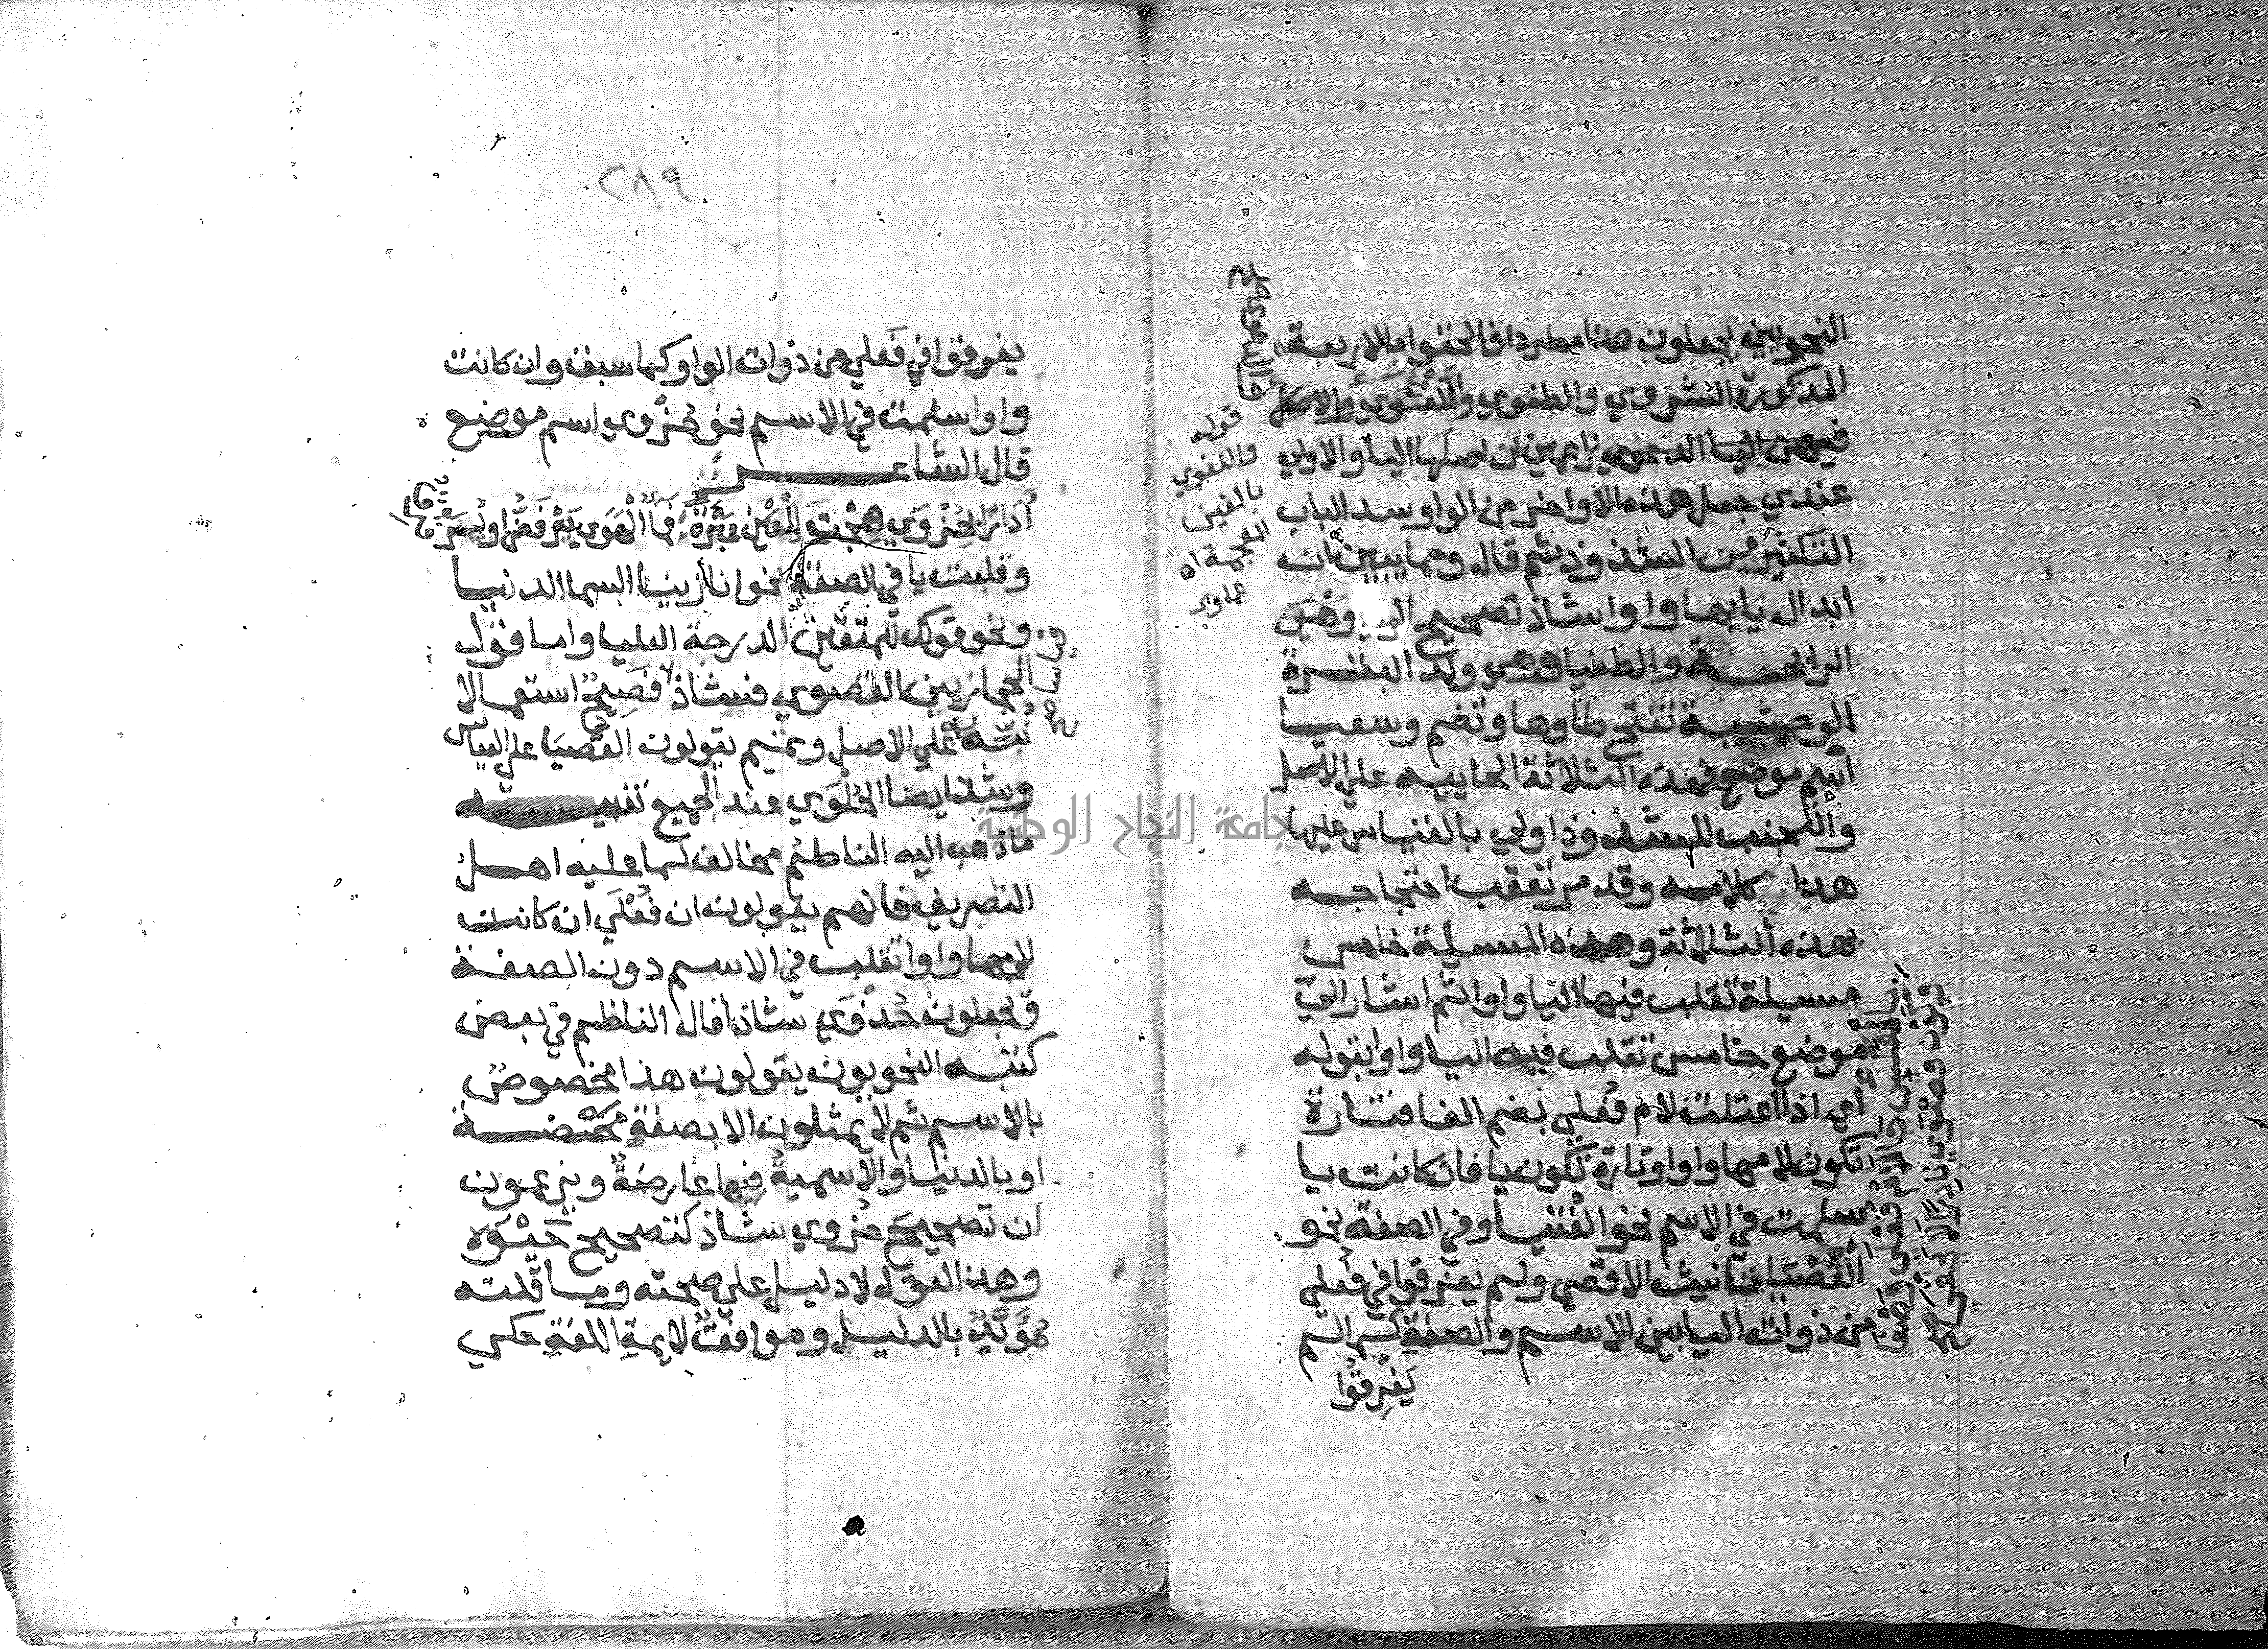 النحويين يجعلون هذا مطردا فالحقوا بالاربعة
المذكورة الشروي والطغوي واللغوي والاصل
فيهن اليا الدعوي زاعمين ان اصلها اليا والاولي
عندي جعل هذه الاواخر من الواو سد الباب
التكثير من الشذوذ ثم قال ومما يبين ان
ابدال يايها واوا شاذ تصحيح الريا وهي
الرايحة والطغيا وهي ولد البقرة
الوحشية تفتح طاوها وتضم وسعيا
اسم موضع فهذه الثلاثة الجاييه علي الاصل
والتجنب للشذوذ اولي بالقياس عليها
هذا كلامه وقد مر تعقب احتجاجه
بهذه الثلاثة وهذه المسيلة خامس
مسيلة تقلب فيها اليا واوا ثم اشار الي
موضع خامس تقلب فيه اليا واوا بقوله
اي اذا اعتلت لام فعلي بضم الفا فتارة
تكون لامها واوا وتارة تكون يا فان كانت يا
سلمت في الاسم نحو الفتيا وفي الصفة نحو
القضيا تانيث الاقصي ولم يفرقوا في فعلي
من ذوات اليا بين الاسم والصفة كما لم
يفرقوا
قوله
واللغوي
بالغين
المعجمة اه
٢٨٩
يفرقوا في فعلي من ذوات الواو كما سبق وان كانت
واوا سلمت في الاسم نحو حزوي اسم موضع
قال الشاعر
أدارا بحزوي هجت للعين عبرة فما الهوي يرفض او يترقرق
وقلبت يا في الصفة نحو انا زينا السما الدنيا
ونحو قولك للمتقين الدرجة العليا واما قول
الحجازيين القصوي فشاذ فصيح استعمالا
نبه به علي الاصل وتميم يقولون القصيا علي القياس
وشذ ايضا الحلوي عند الجميع تنبيه
ما ذهب اليه الناظم مخالف لما عليه اهل
التصريف فانهم يقولون ان فعلي ان كانت
لامها واوا تقلب في الاسم دون الصفة
ويجعلون حزوي شاذا قال الناظم في بعض
كتبه النحويون يقولون هذا مخصوص
بالاسم ثم لا يمثلون الا بصفة محضة
او بالدنيا والاسمية فيها عارضة ويزعمون
ان تصحيح حزوي شاذ كتصحيح حيوة
وهذا القول لا دليل علي صحته وما قلته
مؤيد بالدليل وموافق لايمة اللغة حكي